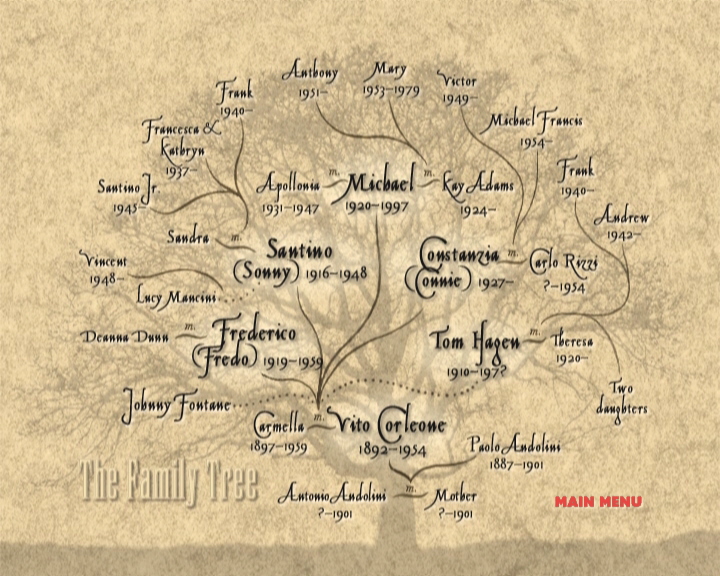 Anthony
1951–
Mary
1953–1979
Victor
1949–
Frank
1940–
Michael Francis
1954–
Francesca &
Kathryn
1937–
Frank
1940–
Santino Jr.
1945–
Apollonia m. Michael m. Kay Adams
1931–1947 1920–1997 1924–
Andrew
1942–
Sandra m. Santino
(Sonny) 1916–1948
Constanzia m. Carlo Rizzi
(Connie) 1927– ?–1954
Vincent
1948–
Lucy Mancini
Deanna Dunn m. Frederico
(Fredo) 1919–1959
Tom Hagen m. Theresa
1910–197? 1920–
Two
daughters
Johnny Fontane
Carmella m. Vito Corleone
1897–1959 1892–1954
Paolo Andolini
1887–1901
The Family Tree
Antonio Andolini m. Mother
?–1901 ?–1901
MAIN MENU